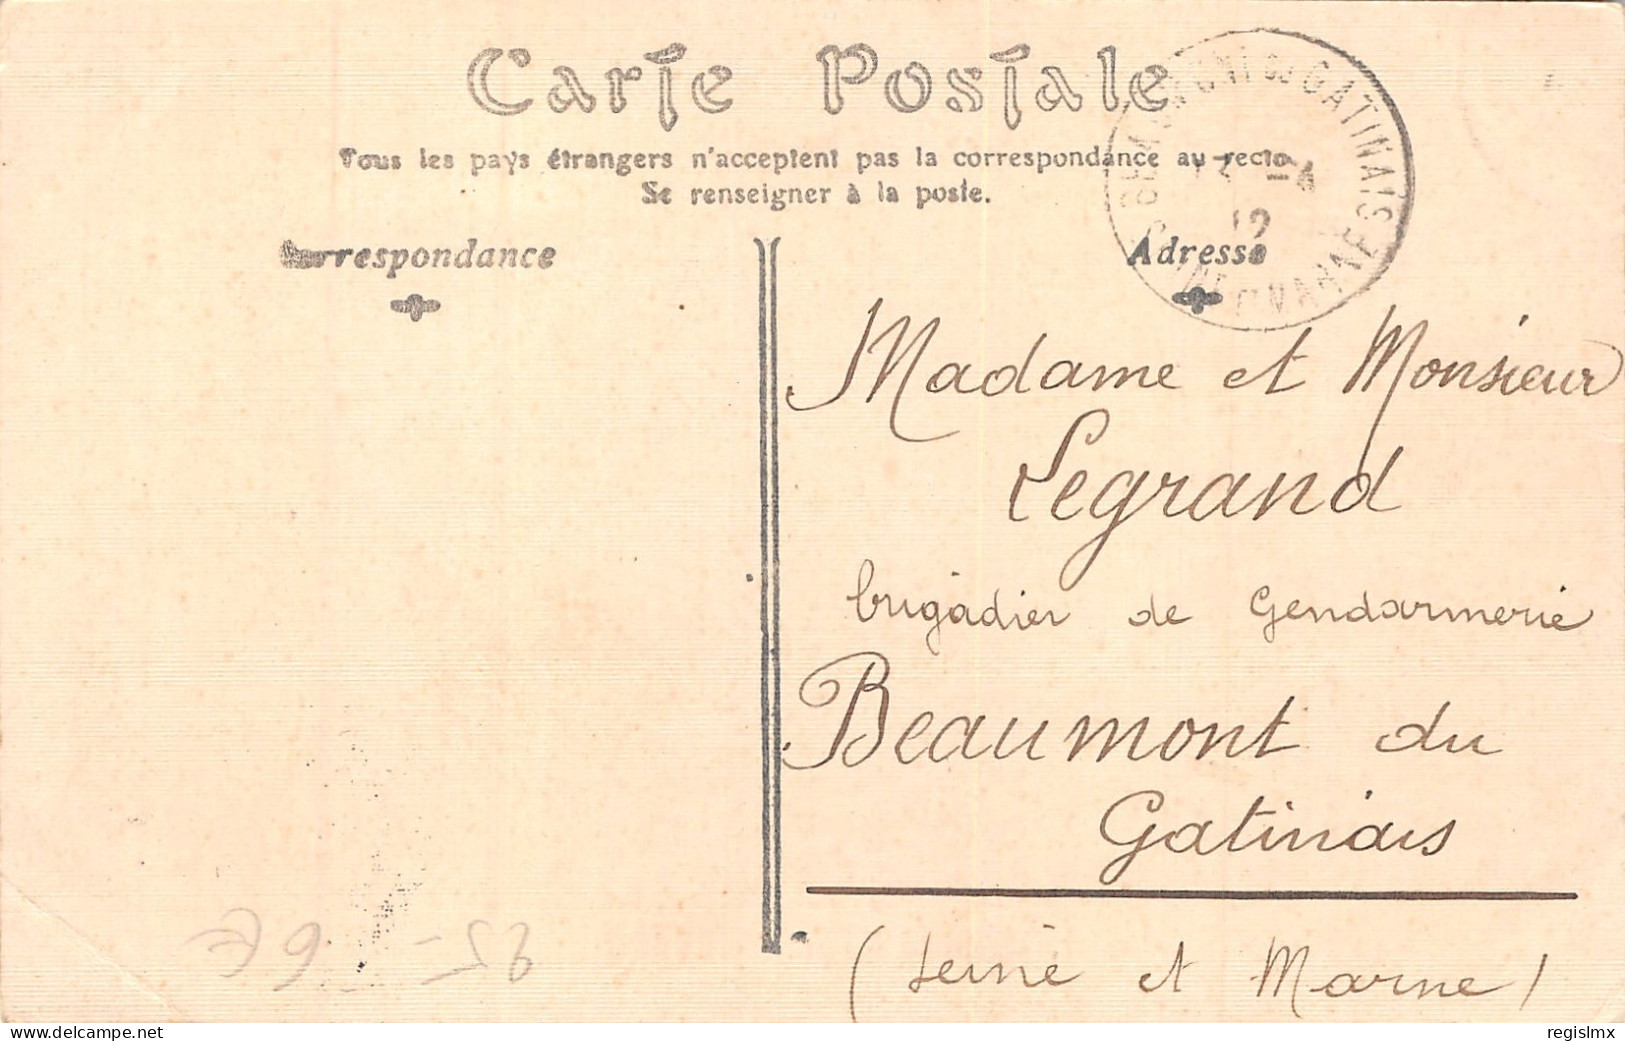 Carte Postale
Tous les pays étrangers n'acceptent pas la correspondance au recto
Se renseigner à la poste.
Correspondance
Adresse
BEAUMONT DU GATINAIS
12
SEINE ET MARNE
Madame et Monsieur
Legrand
brigadier de Gendarmerie
Beaumont du
Gatinais
(Seine et Marne)
www.delcampe.net
regislmx